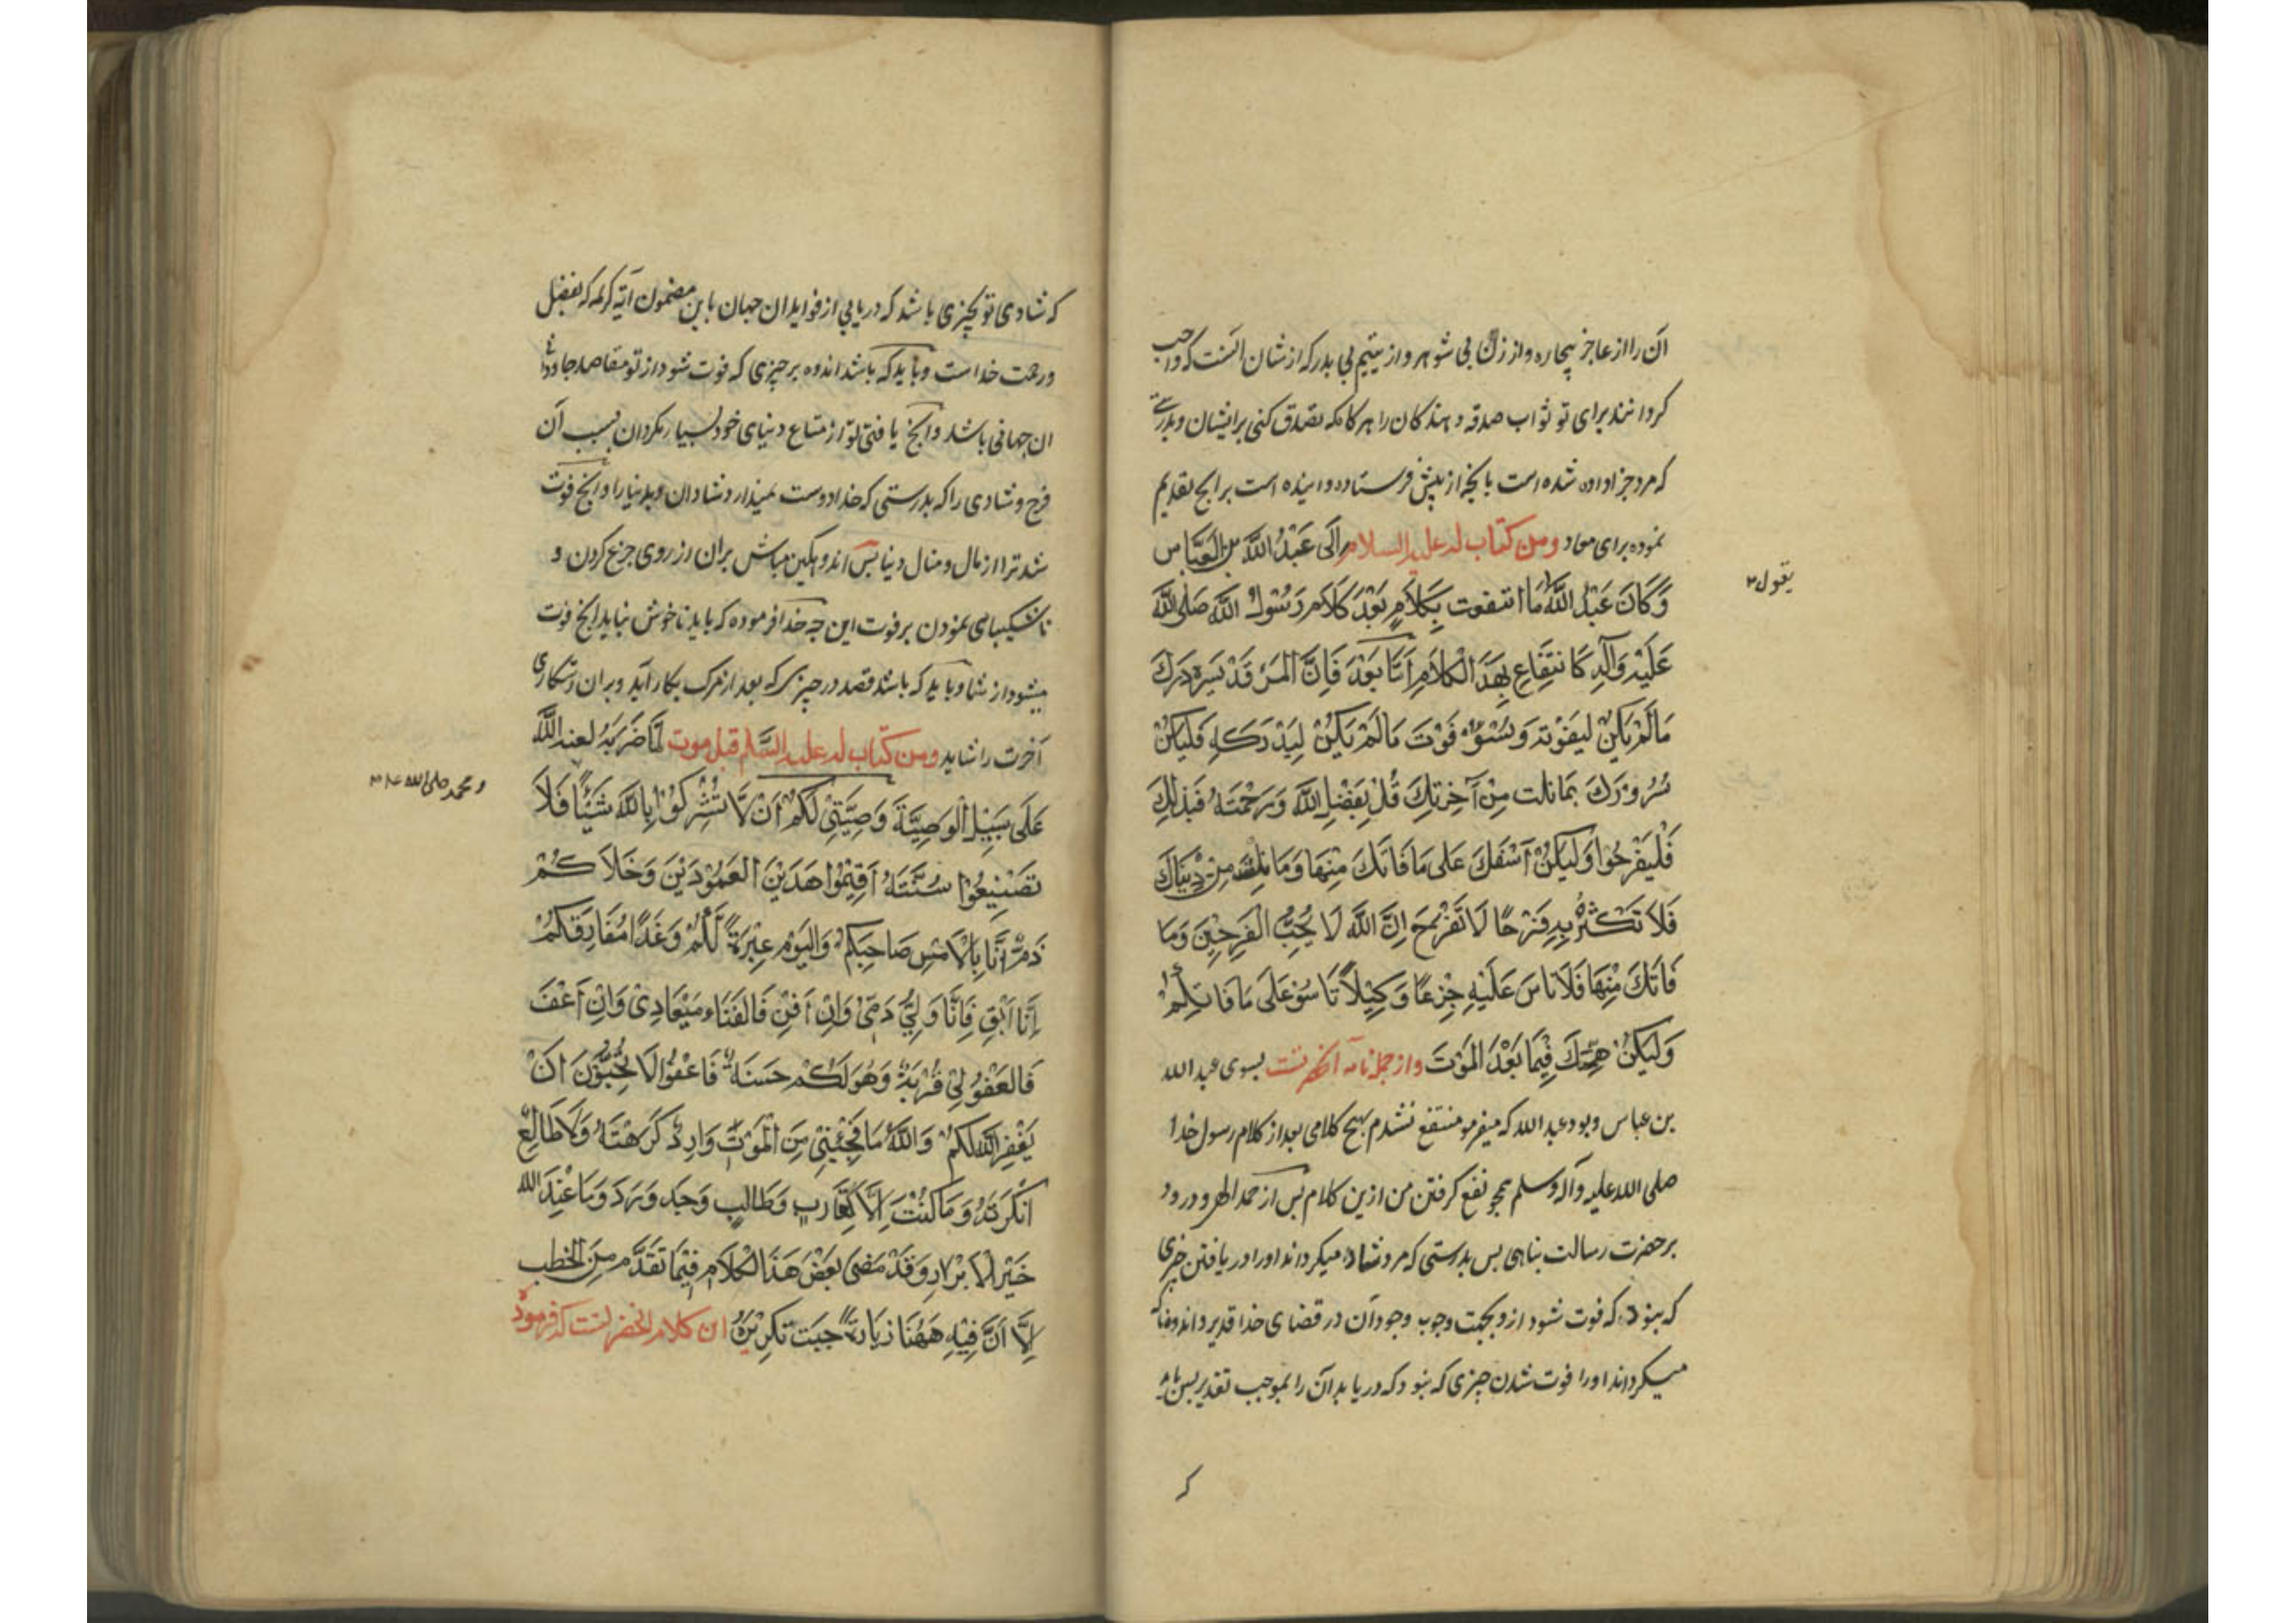 آن را از عاجز بیچاره و از زن بی شوهر و از یتیم بی پدر که از شان انست که واجب
کردانند برای تو ثواب صدقه دهندکان را هرکاه که تصدق کنی برایشان و بدرستی
که مرد جزا داده شده است بانچه از پیش فرستاده و اینده است برانچ تقدیم
نموده برای معاد ومن کتاب له علیه السلام اِلَى عَبْدُ اللَّهِ بن العَبَّاس
وَكَانَ عَبْدُ اللَّهِ مَا انتفعت بِكَلَامٍ بَعْدَ كَلَامِ رَسُولِ اللَّهِ صَلَى اللَّهُ
يقول
عَلَيْهِ وَآلِهِ كَانتِفَاعِ بِهَذَ الْكَلَامِ اَمَّا بَعْدَ فَاِنَّ الْمَرْءَ قَدْ يَسِرُه دَرَكَ
مَا لَمْ يَكُنْ لِيَفُوْتَه وَيَسُؤُهُ فَوْتَ مَا لَمْ يَكُنْ لِيَدْرَكَهِ فَلْيَكُنْ
سُرُورَكَ بِمَا نلت مِنْ آخِرَتِكَ قُلْ بِفَضْلِ اللَّهِ وَبِرَحْمَتِهِ فَبِذَلِكَ
فَلْيَفْرَحُوا وَلْيَكُنْ اَسَفَكَ عَلَى مَا فَاتَكَ مِنْهَا وَمَا نِلْتَ مِنْ دُنْيَاكَ
فَلَا تَكْثُرْ بِهِ فَرَحًا لَا تَفْرَحْ اِنَّ اللَّهَ لَا يُحِبُّ الْفَرِحِيْنَ وَمَا
فَاتَكَ مِنْهَا فَلَا تاسَ عَلَيْهِ جَزَعًا وَكِيْلاً تَاسَوْ عَلَى مَا فَاتَكُمْ
وَلْيَكُنْ هَمِّكَ فِيْمَا بَعْدَ الْمَوْتَ و از جمله نامه آنحضرتست بسوی عبد الله
بن عباس و بود عبد الله که میفرمو منتفع نشدم بهیچ کلامی بعد از کلام رسول خدا
صلی الله علیه وآله وسلم همچو نفع کرفتن من ازین کلام بس از حمد الهی و درود
بر حضرت رسالت پناهی بس بدرستی که مرد شاد میکرداند او را دریافتن چیزی
که نبود که فوت شود ازو بجهت وجوب وجود آن در قضای خدا قدیر و اندوهناک
میکرداند اورا فوت شدن چیزی که نبود که دریابد آن را بموجب تقدیر بس باید
که
که شادی تو بچیزی باشد که دریابی از فواید ان جهان باین مضمون آیه کریمه که بفضل
و رحمت خداست و باید که باشد اندوه بر چیزی که فوت شود از تو مقاصد جاودا
ان جهانی باشد و انچ یافتی تو از متاع دنیای خود بسیار مکردان بسبب آن
فرح و شادی را که بدرستی که خدا دوست نمیدارد شادان بدنیا را و انچ فوت
شد ترا از مال و منال دنیا بس اندوهکین مباش بران از روی جزع کردن و
ناشکیبای نمودن بر فوت این چه خدا فرموده که باید ناخوش نیاید انچ فوت
میشود از شما و باید که باشد قصد در چیزی که بعد از مرک بکار آید و بران رستکاری
آخرت را شاید ومن کتاب له علیه السَّلم قبل موت لَمَّا ضَرَبَهُ لعنه اللَّه
عَلَى سَبِيْلِ الْوَصِيَّةَ وَصِيَّتِيْ لَكُمْ اَنْ لَّا تُشْرِكُوْا بِاللَّهِ شَيْئًا فَلَا
و محمد صلى الله
تَضَيِّيعُوْا سُنَّتَهُ اَقِيْمُوا هَذَيْنَ الْعَمُوْدَيْنَ وَخَلَا كُمْ
ذَمٌّ اَنَّا بِالْاَمْسِ صَاحِبَكُمْ وَالْيَوْمَ عِبْرَةً لَّكُمْ وَغَدًا مُفَارِقَكُمْ
اِنَّا اَبْقِ فَاِنَّا وَلِيُّ دَمِيْ وَاِنْ اَفْنِ فَالْفَنَاء مِيْعَادِيْ وَاِنْ اَعْفَ
فَالْعَفْوُ لِيْ قُرْبَةٌ وَهُوَ لَكُمْ حَسَنَةً فَاعْفُوْا اَلَا تُحِبُّوْنَ اَنْ
يَغْفِرَ اللَّهُ لَكُمْ وَاللَّهُ مَا فَجِئَنِيْ مِنَ الْمَوْتِ وَارِدٌ كَرِهْتَهُ وَلَا طَالِعٌ
اَنْكَرْتَهُ وَمَا كُنْتَ اِلَّا كَقَارِبٍ وَطَالِبٍ وَجَدَ وَرَدَ وَمَا عِنْدَ اللّه
خَيْر الاَبْرَارِ وَقَدْ مَضَى بَعْضَ هَذَا الْكَلَامِ فِيْمَا تَقَدَّمَ مِنَ الْخُطَب
اِلَّا اَنَّ فِيْهِ هَهُنَا زِيَادَةً جَبَتْ تَكْرِيْرَهُ ان کلام انحضرتست که فرموده